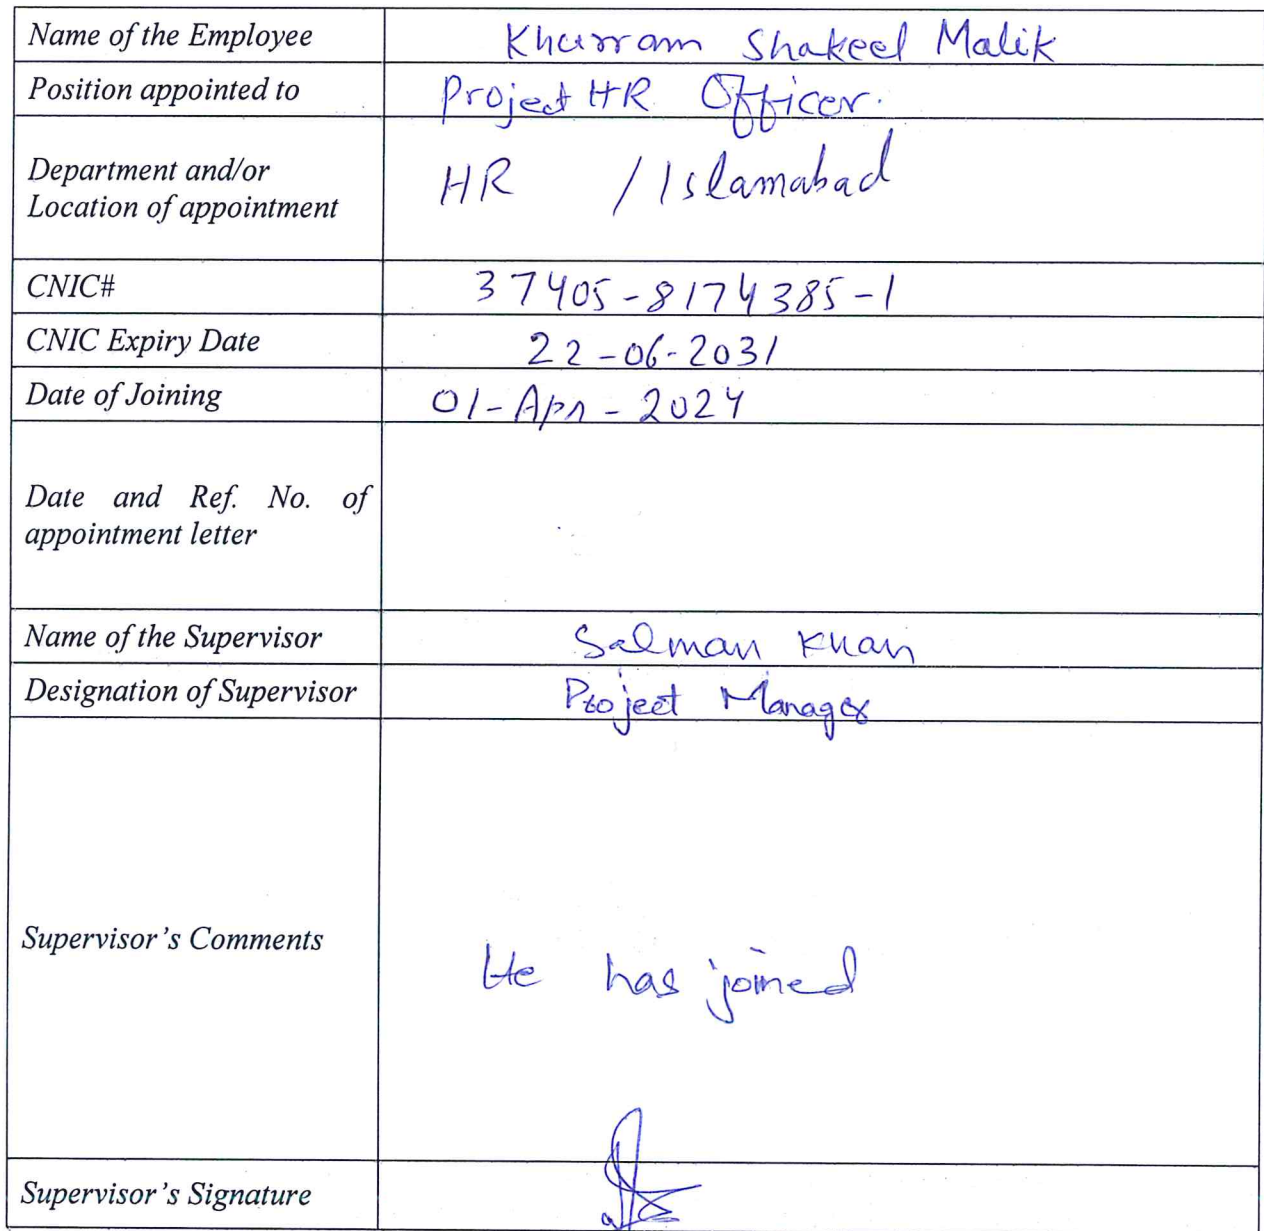 Name of the Employee Khurram Shakeel Malik
Position appointed to Project HR Officer.
Department and/or
Location of appointment HR / Islamabad
CNIC# 37405-8174385-1
CNIC Expiry Date 22-06-2031
Date of Joining 01-Apr-2024
Date and Ref. No. of
appointment letter
Name of the Supervisor Salman Khan
Designation of Supervisor Project Manager
Supervisor's Comments He has joined
Supervisor's Signature